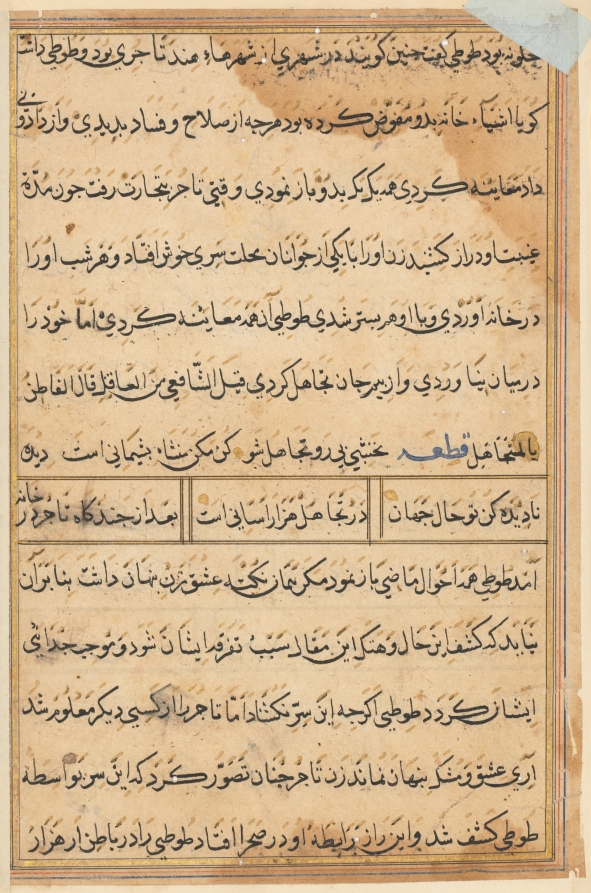 چگونه بود طوطی گفت چنین گویند در شهری از شهرهاء هند تاجری بود و طوطی داشت
گویا اشیاء خانه بدو مفوّض کرده بود هرچه از صلاح و فساد بدیدی و از داد و بی
داد معاینه کردی همه یک یک بدو باز نمودی وقتی تاجر بتجارت رفت چون مدّة
غیبت او دراز کشید زن او را با یکی از جوانان محلت سری خوش افتاد و هر شب او را
در خانه آوردی و با او هم بستر شدی طوطی آن همه معاینه کردی امّا خود را
در میان نیاوردی و از بیم جان تجاهل کردی قیل الشّافعی من العاقل قال الفاطن
المتجاهل قطعه نخشبی رو تجاهل شو کن مکن منشاء پشیمانی است دیده
نادیده کن تو حال جهان در تجاهل هزار آسانی است بعد از چند گاه تاجر در خانه
آمد طوطی همه احوال ماضی باز نمود مگر همان نکته عشق زن پنهان داشت بنابر آن
نباید که کشف این حال و هتک این مقال سبب تفرقه ایشان شود و موجب جدائی
ایشان گردد طوطی اگرچه این سرّ نگشاد امّا تاجر را از کسی دیگر معلوم شد
آری عشق و مشک پنهان نماند زن تاجر چنان تصوّر کرد که این سر بواسطه
طوطی کشف شد و این راز برابطه او در صحرا افتاد طوطی را در باطن از هزار